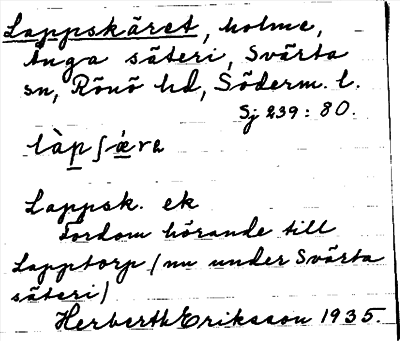 Lappskäret, holme,
Inga säteri, Svärta
sn, Rönö hd, Söderm. l.
Sj 239:80.
làpʃǽra
Lappsk. ek
Fordom hörande till
Lapptorp (nu under Svärta
säteri)
Herberth Eriksson 1935.